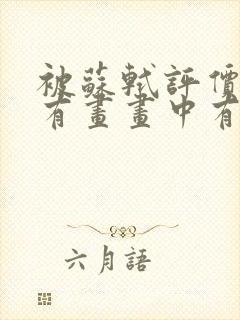 被蘇軾評價
有畫畫中有
六月語